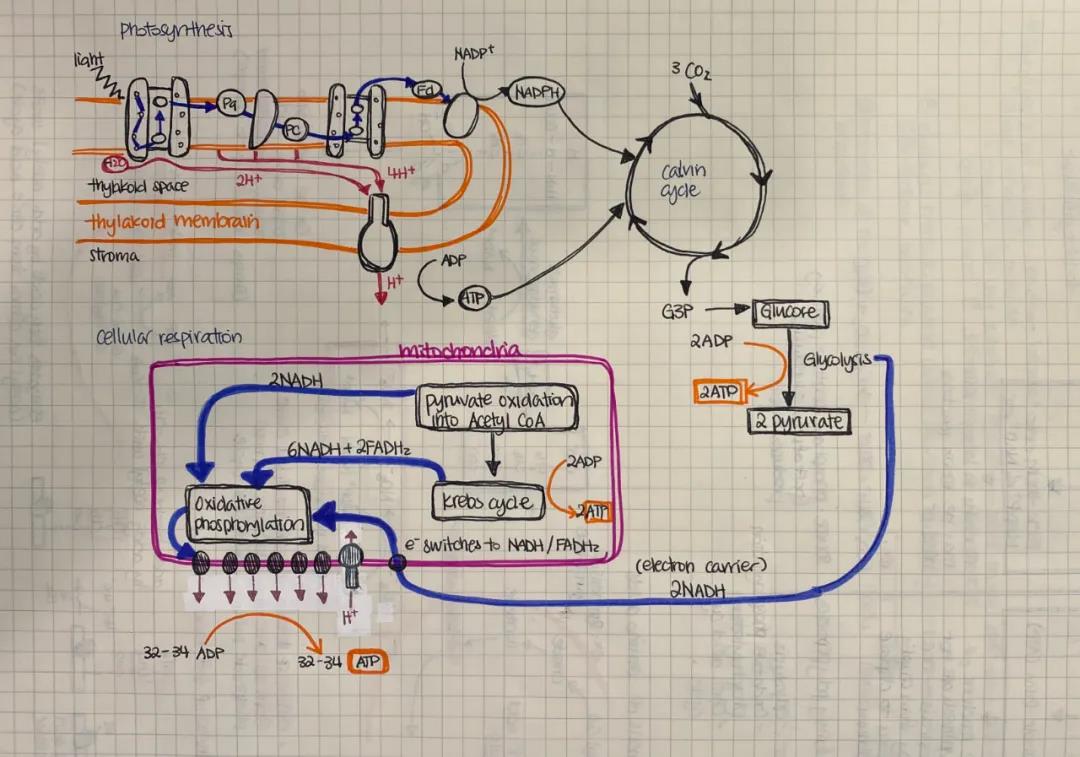 photosynthesis
light
NADP+
Pq
Fd
NADPH
PC
3 CO₂
H2O
2H+
4H+
thylakoid space
thylakoid membrain
stroma
calvin
cycle
H+
ADP
ATP
G3P
Glucose
2ADP
Glycolysis
2ATP
2 pyruvate
cellular respiration
mitochondria
2NADH
pyruvate oxidation
into Acetyl CoA
6NADH + 2FADH₂
2ADP
Krebs cycle
2ATP
Oxidative
phosphorylation
e⁻ switches to NADH / FADH₂
H+
(electron carrier)
2NADH
32-34 ADP
32-34 ATP